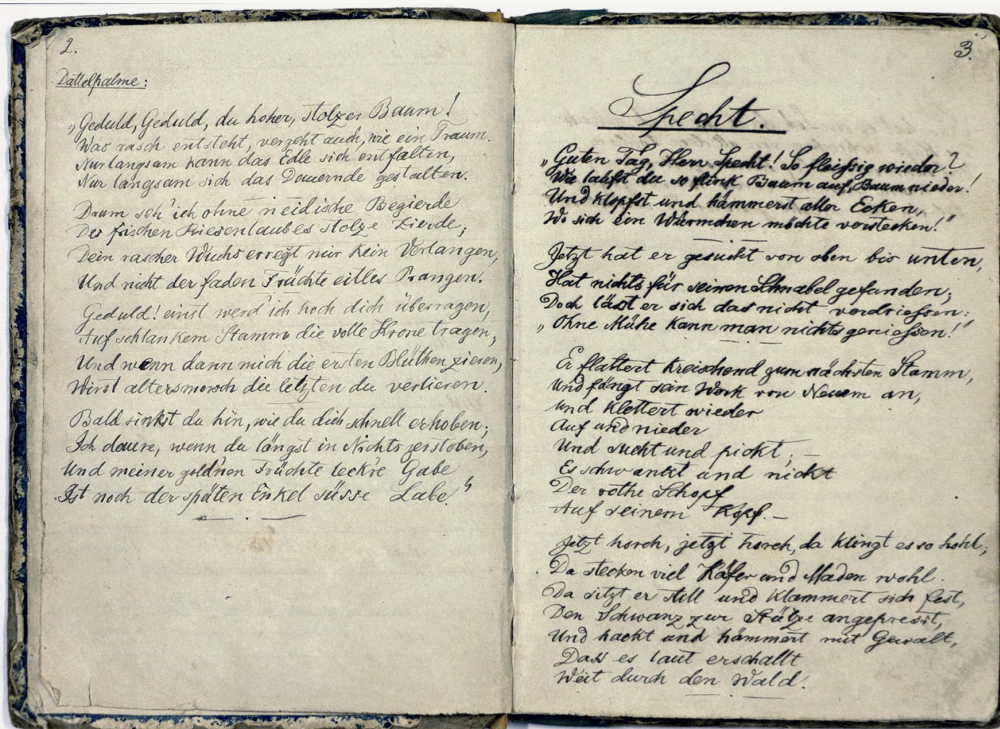 2.
Dattelpalme:
„Geduld, Geduld, du hoher, stolzer Baum!
Was rasch entsteht, vergeht auch, wie ein Traum.
Nur langsam kann das Edle sich entfalten,
Nur langsam sich das Dauernde gestalten.
Drum seh' ich ohne neidische Begierde
Des frischen Riesenlaubes stolze Zierde;
Dein rascher Wuchs erregt mir kein Verlangen,
Und nicht der faden Früchte eitles Prangen.
Geduld! einst werd' ich hoch dich überragen,
Auf schlankem Stamm die volle Krone tragen,
Und wenn dann mich die ersten Blüthen zieren,
Wirst altersmorsch die letzten du verlieren.
Bald sinkst du hin, wie du dich schnell erhoben;
Ich dauere, wenn du längst in Nichts zerstoben,
Und meiner gold'nen Früchte leck're Gabe
Ist noch der späten Enkel süsse Labe."
3.
Specht.
„Guten Tag, Herr Specht! So fleißig wieder?
Wie läufst du so flink Baum auf Baum nieder!
Und klopfst und hämmerst aller Ecken,
Wo sich ein Würmchen möchte verstecken!"
Jetzt hat er gesucht von oben bis unten,
Hat nichts für seinen Schnabel gefunden;
Doch lässt er sich das nicht verdriessen:
„Ohne Mühe kann man nichts geniessen!"
Er flattert kreischend zum nächsten Stamm,
Und fängt sein Werk von Neuem an,
und klettert wieder
Auf und nieder
Und sucht und pickt; —
Es schwanket und nickt
Der rothe Schopf
Auf seinem Kopf. —
Jetzt horch, jetzt horch, da klingt es so hohl;
Da stecken viel Käfer und Maden wohl.
Da sitzt er still und klammert sich fest,
Den Schwanz zur Stütze angepresst,
Und hackt und hämmert mit Gewalt,
Dass es laut erschallt
Weit durch den Wald.